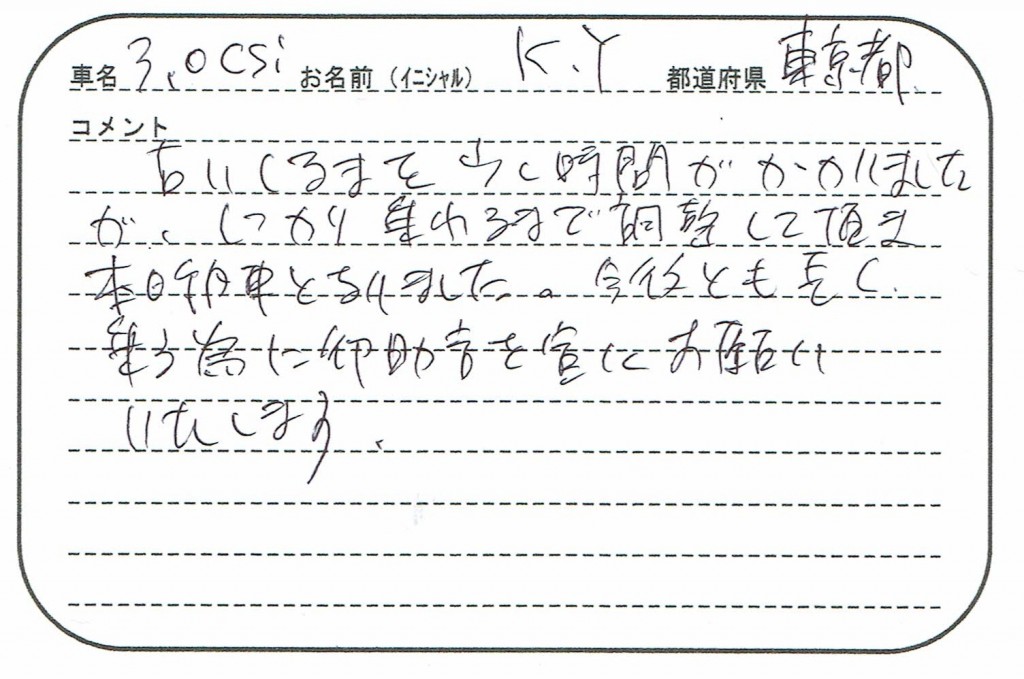 車名 3.0CSi お名前(イニシャル) K.Y 都道府県 東京都
コメント
古いくるまで少し時間がかかりました
が、しっかり乗れるまで調整して頂き
本日納車となりました。今後とも長く
乗る為に御助言を宜しくお願い
いたします。